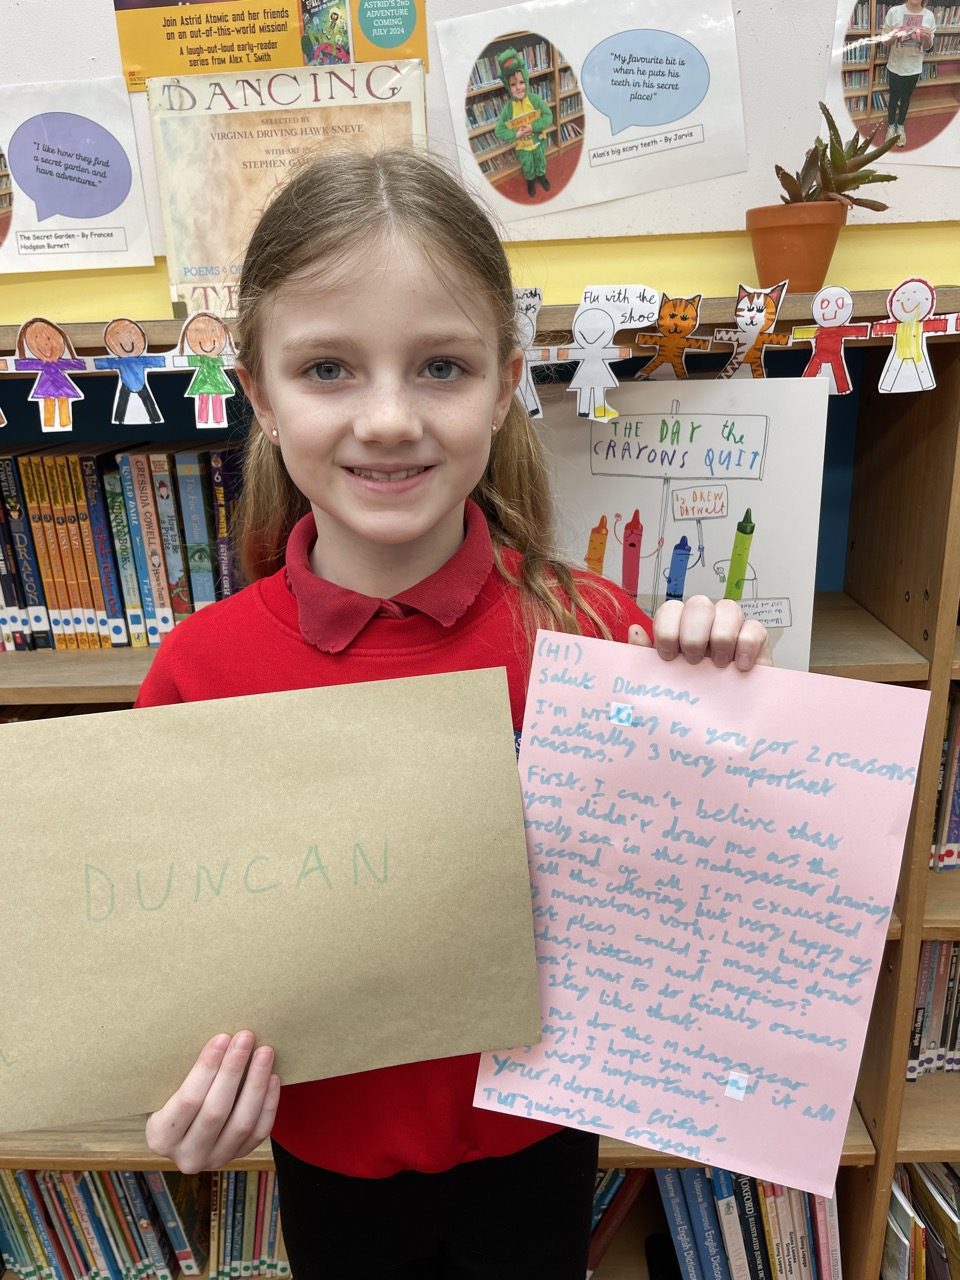 Join Astrid Atomic and her friends
on an out-of-this-world mission!
A laugh-out-loud early-reader
series from Alex T. Smith
ASTRID'S 2ND
ADVENTURE
COMING
JULY 2024
DANCING
SELECTED BY
VIRGINIA DRIVING HAWK SNEVE
WITH ART BY
STEPHEN
POEMS
"I like how they find
a secret garden and
have adventures."
The Secret Garden - By Frances
Hodgson Burnett
"My favourite bit is
when he puts his
teeth in his secret
place!"
Alan's big scary teeth - By Jarvis
with
Flu with the
shoe
THE DAY the
CRAYONS QUIT
by DREW
DAYWALT
ROALD DAHL
CRESSIDA COWELL
How to Be
DUNCAN
(HI)
Salut Duncan,
I'm writing to you for 2 reasons
actually 3 very important
reasons.
First, I can't belive that
you didn't draw me as the
lovely sea in the Madagascar drawing
second of all I'm exausted
all the coloring but very happy of
marvelous work. Last but not
pleas could I maybe draw
kittens and puppies?
want to do twinkly oceans
stay like that.
me do the Madagascar
! I hope you read it all
very important.
Your Adorable friend,
Turquoise crayon.
OXFORD